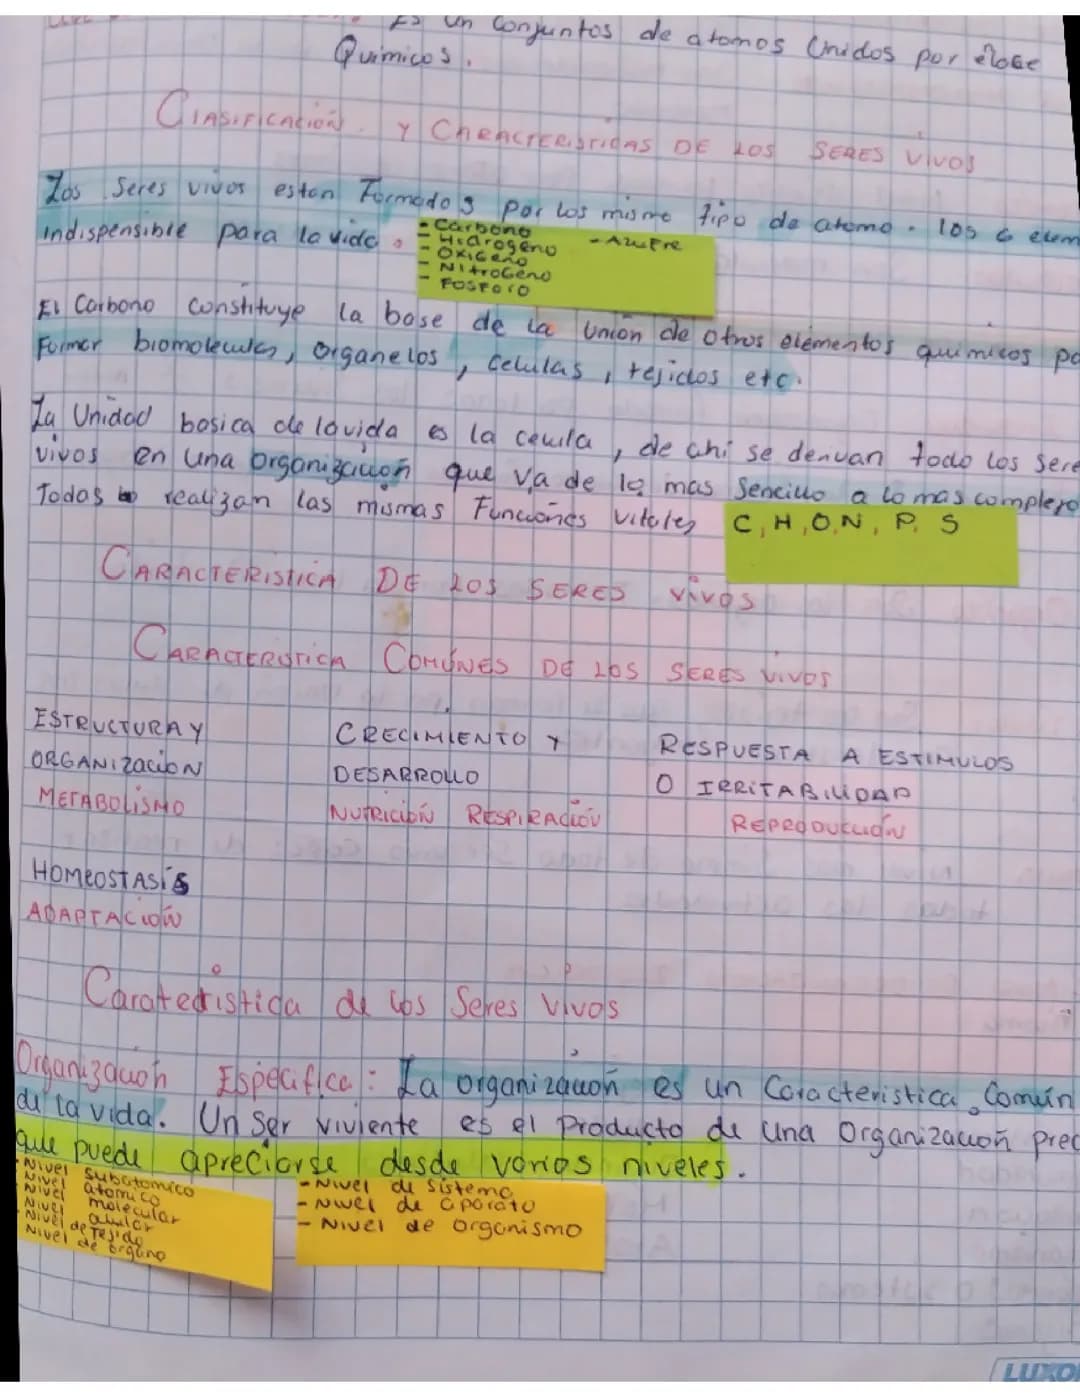 Es un Conjuntos de atomos Unidos por enlase
Quimicos.
Clasificación y Chracterístidas DE LOS SERES VIVOS
Los Seres vivos estan Formados por los mismo tipo de atomo. los 6 elem
indispensible para la vida.
- Carbono
- Hidrogeno
- Oxigeno
- Nitrogeno
- Fosforo
- Azufre
El Carbono constituye la base de la Unión de otros elementos quimicos pa
Formar biomoleculas, organelos, celulas, tejidos etc.
La Unidad basica de la vida es la celula, de ahi se derivan todo los sere
vivos en una organización que va de lo mas Sencillo a lo mas complejo
Todos realizan las mismas Funciones vitales
C, H, O, N, P, S
CARACTERISTICA DE LOS SERES VIVOS
CARACTERISTICA COMÚNES DE LOS SERES VIVOS
ESTRUCTURA Y
ORGANIZACIÓN
METABOLISMO
CRECIMIENTO Y
DESARROLLO
NUTRICIÓN RESPIRACIÓN
RESPUESTA A ESTIMULOS
O IRRITABILIDAD
REPRODUCCIÓN
HOMEOSTASIS
ADAPTACIÓN
Caracteristica de los Seres Vivos
Organización Especifica: La organización es un Caracteristica Común
de la vida. Un Ser viviente es el Producto de una Organización prec
que puede apreciarse desde varios niveles.
- Nivel subatomico
Nivel atomico
Nivel molecular
Nivel celular
Nivel de Tejido
Nivel de organo
- Nivel de sistema
- Nivel de aparato
- Nivel de organismo